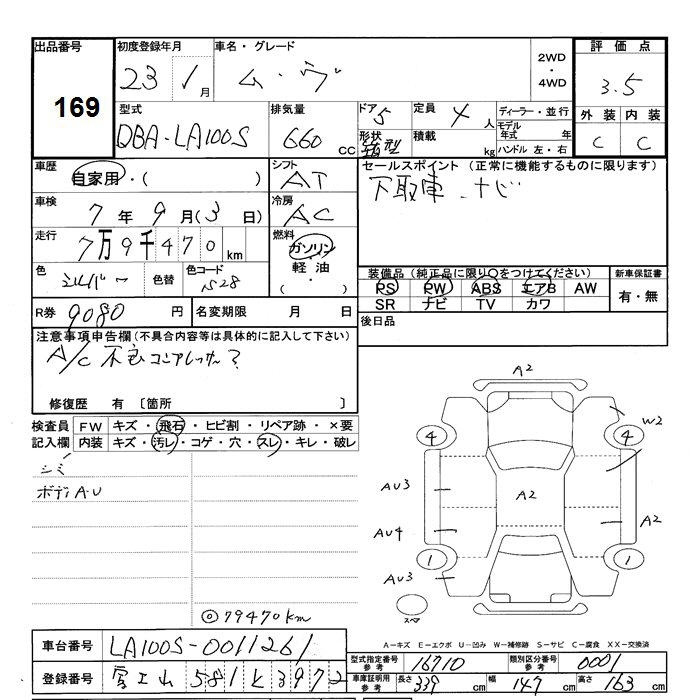 出品番号
169
初度登録年月
23 1月
車名・グレード
ム・ヴ
2WD
・
4WD
評価点
3.5
外装 内装
C C
型式
DBA-LA100S
排気量
660 cc
ドア 5
形状 箱型
定員 4人
積載 kg
ディーラー・並行
モデル年式 年
ハンドル 左・右
車歴
自家用・( )
シフト
AT
車検
7年9月(3日)
冷房
AC
走行
7万9千470km
燃料
ガソリン
軽油
( ・ )
色
シルバー
色替
色コード
S28
R券 9080円
名変期限 月 日
セールスポイント (正常に機能するものに限ります)
下取車 ナビ
装備品(純正品に限り○をつけてください)
PS PW ABS エアB AW
SR ナビ TV カワ
新車保証書
有・無
後日品
注意事項申告欄(不具合内容等は具体的に記入して下さい)
A/C 不良 コンプレッサー?
修復歴 有 〔箇所 〕
検査員
記入欄
FW キズ・飛石・ヒビ割・リペア跡・×要
内装 キズ・汚レ・コゲ・穴・スレ・キレ・破レ
シミ
ボディA.U
◎79470km
A2
W2
4
4
AU3
A2
AU4
A2
1
1
AU3
スペア
A-キズ E-エクボ U-凹み W-補修跡 S-サビ C-腐食 XX-交換済
車台番号 LA100S-0011261
登録番号 富士山 581 と 3972
型式指定番号 参考 16710
類別区分番号 参考 0001
車庫証明用 参考 長さ 339 cm 幅 147 cm 高さ 163 cm